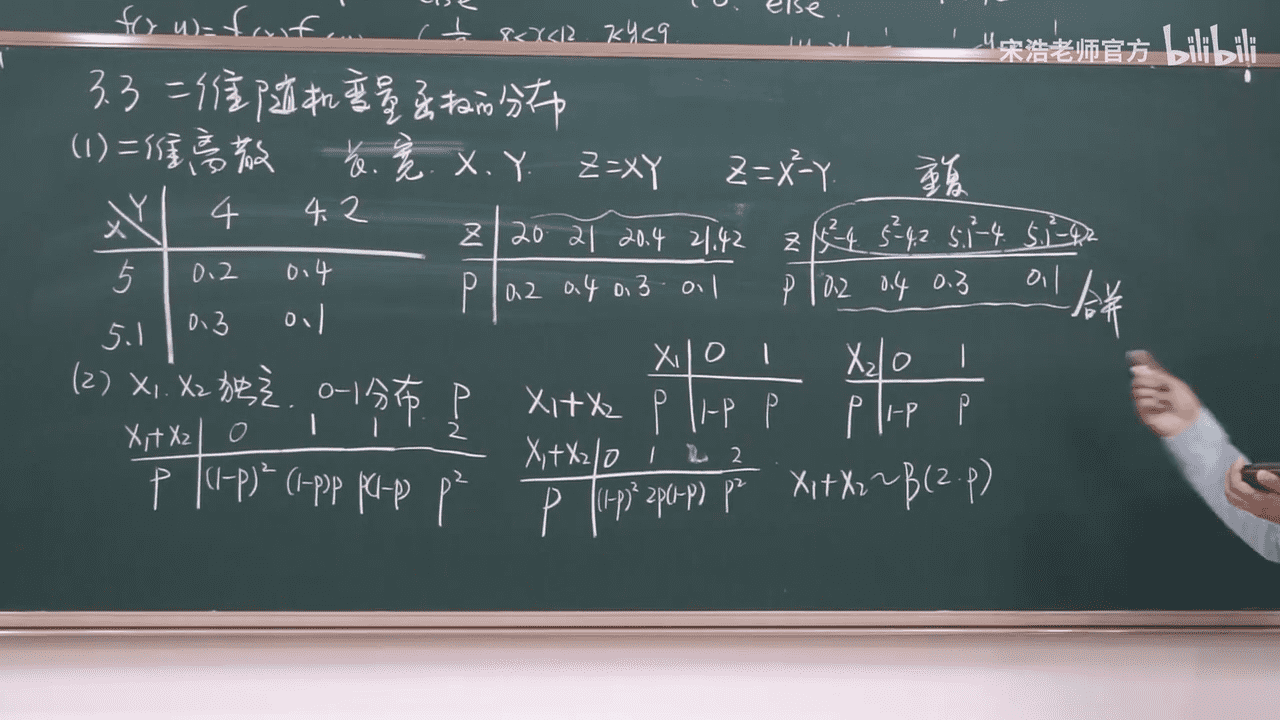 else
0. else.
8<x<12 7<y<9
宋浩老师官方 bilibili
3.3 二维随机变量函数的分布
(1) 二维离散 长、宽. X、Y. Z=XY Z=X²-Y. 重复
X Y 4 4.2
5 0.2 0.4
5.1 0.3 0.1
Z 20 21 20.4 21.42
P 0.2 0.4 0.3 0.1
Z 5²-4 5²-4.2 5.1²-4 5.1²-4.2
P 0.2 0.4 0.3 0.1 合并
(2) X₁、X₂ 独立. 0-1分布. P
X₁+X₂
X₁ 0 1
P 1-P P
X₂ 0 1
P 1-P P
X₁+X₂ 0 1 1 2
P (1-P)² (1-P)P P(1-P) P²
X₁+X₂ 0 1 2
P (1-P)² 2P(1-P) P²
X₁+X₂~B(2.P)